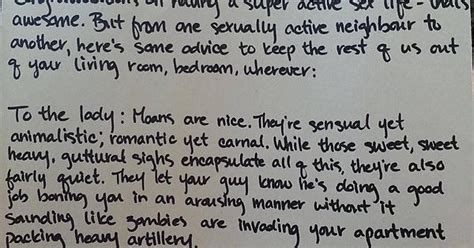 on having a super active sex life - thats
awesome. But from one sexually active neighbour to
another, here's some advice to keep the rest of us out
of your living room, bedroom, wherever:
To the lady: Moans are nice. They're sensual yet
animalistic; romantic yet carnal. While those sweet, sweet
heavy, guttural sighs encapsulate all of this, they're also
fairly quiet. They let your guy know he's doing a good
job boning you in an arousing manner without it
sounding like zombies are invading your apartment
packing heavy artillery.